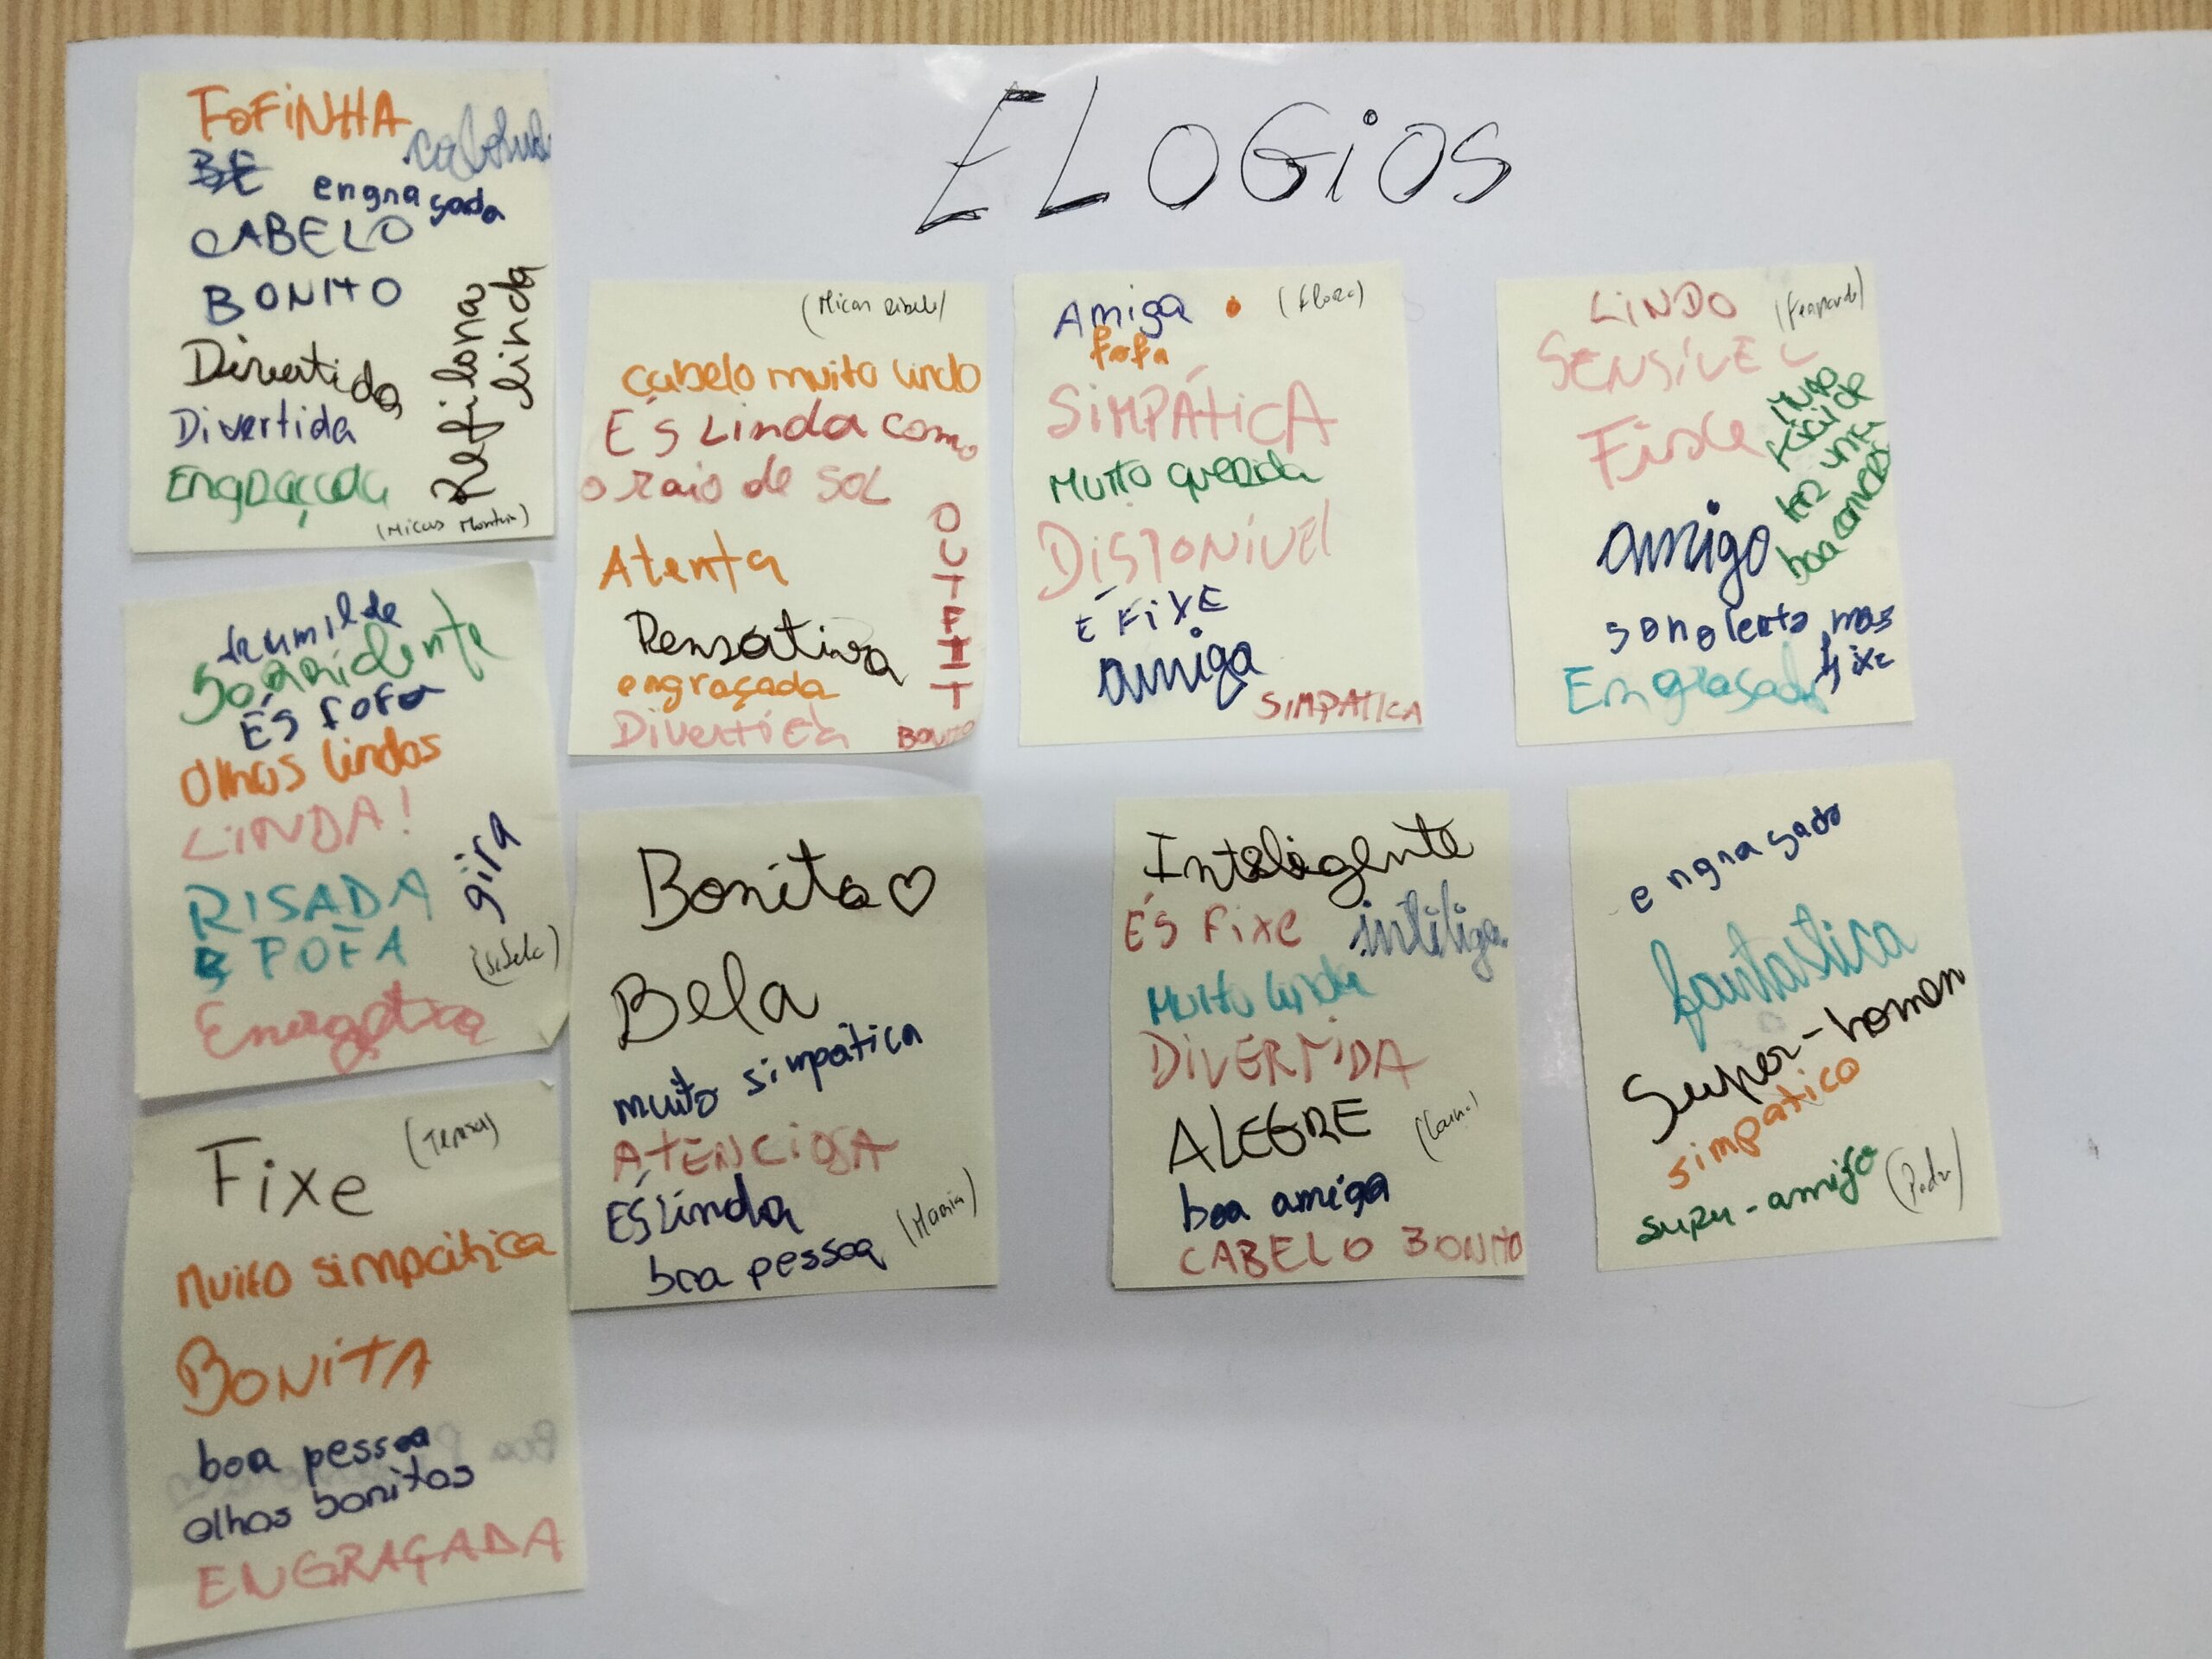 ELOGiOS
FOFiNHA
engraçada
CABELO
BONITO
Divertida
Divertida
Engraçada
Refilona
linda
(Micas Monteiro)
(Micas Ribeiro)
cabelo muito lindo
És Linda como
o raio de SOL
Atenta
Pensativa
engraçada
Divertida
OUTFIT
BONITO
Amiga
(Flora)
fofa
SiMPÁTiCA
Muito querida
DISPONÍVEl
É FiXE
amiga
SIMPATICA
LiNDO
(Fernando)
SENSÍVEL
Fixe
Muito
fácil de
ter uma
boa conversa
amigo
sonolento mas
fixe
Engraçado
humilde
Sorridente
És fofa
Olhos lindos
LiNDA!
gira
RISADA
FOFA
(Isabela)
Energética
Bonita♡
Bela
muito simpática
ATENCiOSA
ÉS Linda
boa pessoa
(Maria)
Inteligente
ÉS Fixe
Muito linda
DiVERTiDA
ALEGRE
boa amiga
CABELO BONITO
engraçado
fantastica
Super-homem
simpatico
super-amigo
(Pedro)
Fixe
(Teresa)
Muito simpática
BONiTA
boa pessoa
olhos bonitos
ENGRAÇADA